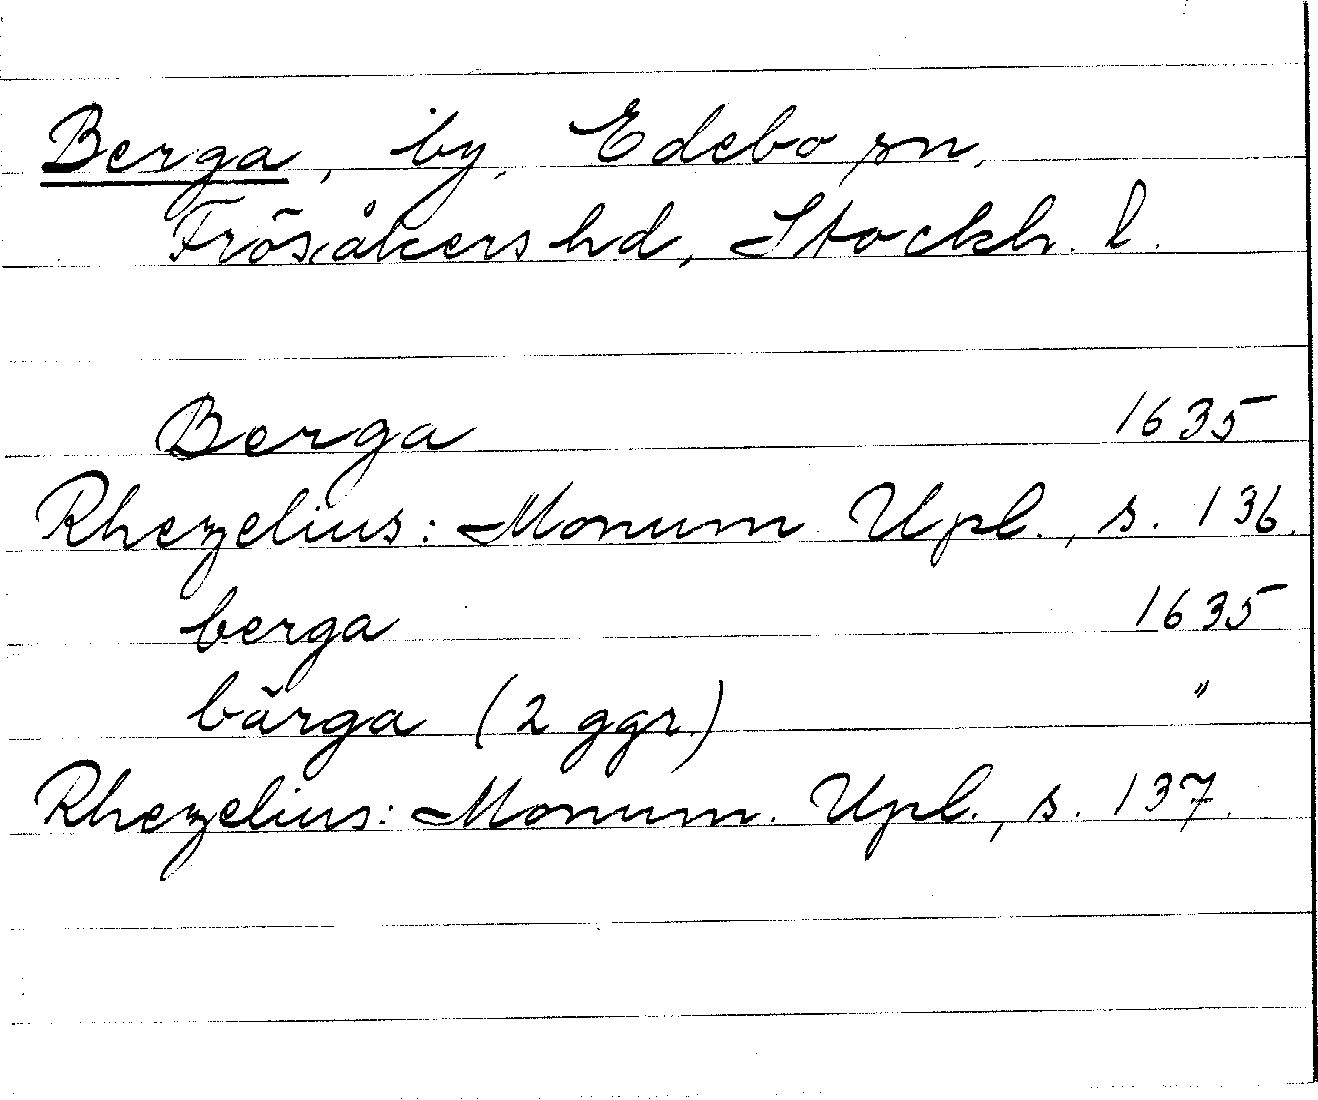 Berga, by, Edebo sn,
Frösåkers hd, Stockh. l.
Berga 1635
Rhezelius: Monum. Upl., s. 136.
berga 1635
bärga (2 ggr.) "
Rhezelius: Monum. Upl., s. 137.